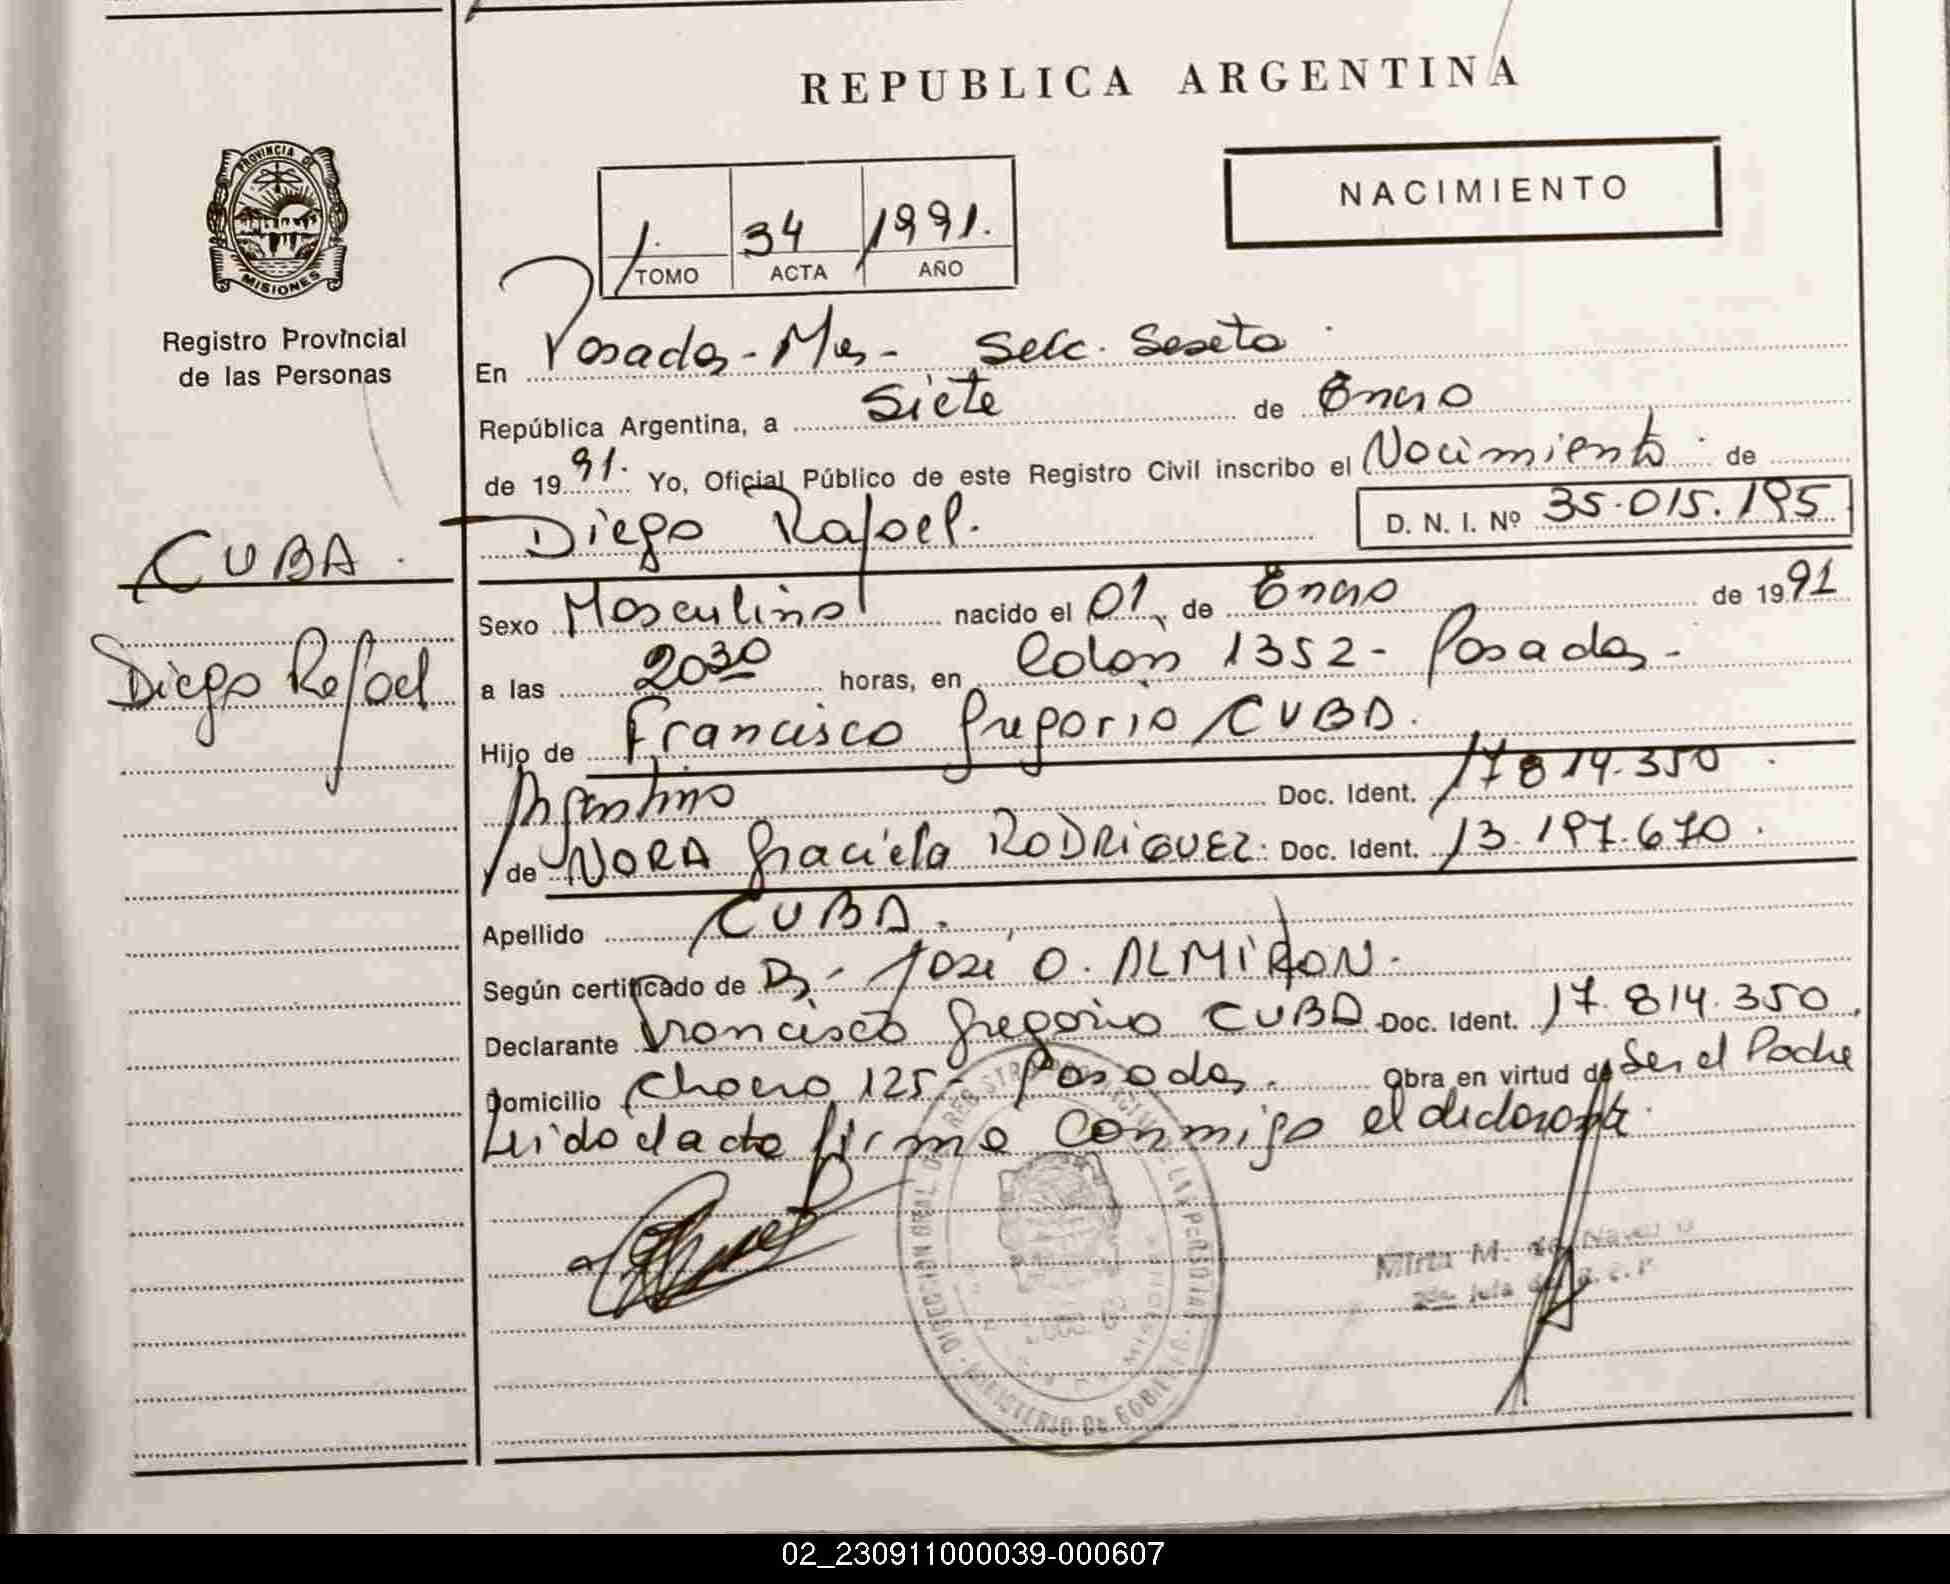 REPUBLICA ARGENTINA
PROVINCIA DE
MISIONES
Registro Provincial
de las Personas
1. 34 1991.
TOMO ACTA AÑO
NACIMIENTO
En Posadas - Mnes - Secc. Sexta
República Argentina, a Siete de Enero
de 19 91. Yo, Oficial Público de este Registro Civil inscribo el Nacimiento de
Diego Rafael. D. N. I. Nº 35.015.195
CUBA.
Diego Rafael
Sexo Masculino nacido el 01 de Enero de 19 91
a las 20 30 horas, en Colón 1352 - Posadas -
Hijo de Francisco Gregorio CUBA.
Argentino Doc. Ident. 17 814.350
y de NORA Graciela RODRIGUEZ. Doc. Ident. 13.197.670.
Apellido CUBA.
Según certificado de Dr. José O. ALMIRON.
Declarante Francisco Gregorio CUBA Doc. Ident. 17.814.350
Domicilio Chaco 125 - Posadas. Obra en virtud de Ser el Padre
Leido el acta firma conmigo el declarante.
Mirta M. de
02_230911000039-000607